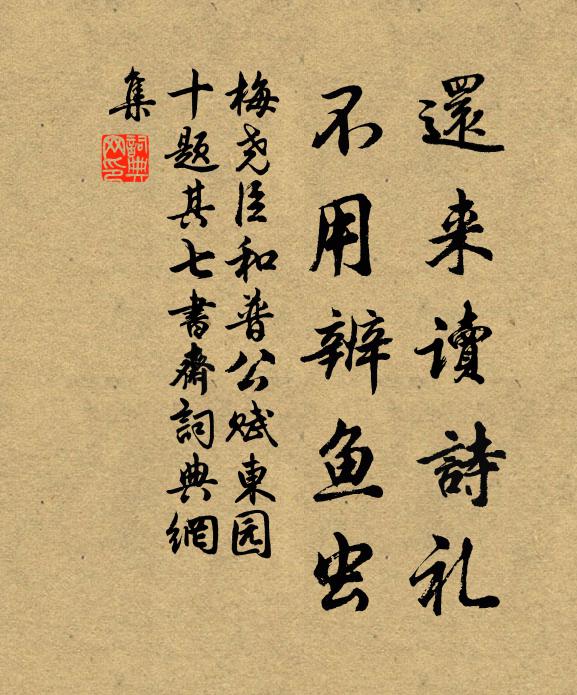 還来读詩礼
不用辨鱼虫
梅尧臣和普公赋東园
十题其七書齋詞典網
集
詞典網印